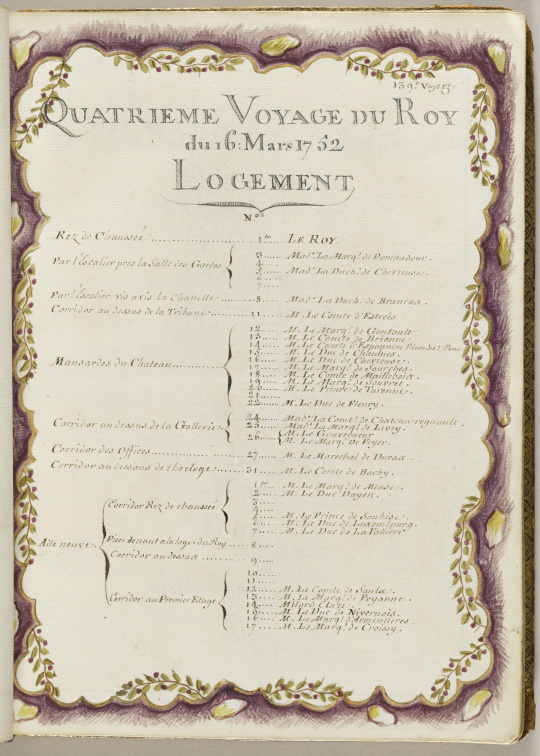 139.e Voyage.
QUATRIEME VOYAGE DU ROY
du 16: Mars 1752
LOGEMENT
N.os
Rez de Chaussée 1.er LE ROY.
3 Mad.e La Marq.e de Pompadour.
Par l'escalier pres la Salle des Gardes 4
5 Mad.e La Duch.e de Chevreuse.
6
7
Par l'escalier vis avis la Chapelle 8 Mad.e La Duch.e de Brancas.
Corridor au dessus de la Tribune 11 M. Le Comte d'Estrées
12 M. Le Marq.s de Gontault
13 M. Le Comte de Brionne
14 M. Le Comte d'Egmont
15 M. Le Duc de Chaulnes
16 M. Le Duc de Chevreuse
17 M. Le Marq.s de Sourches
Mansardes du Chateau 18 M. Le Comte de Maillebois
19 M. Le Marq.s de Souvret
20 M. Le Prince de Turenne
21
22 M. Le Duc de Fleury.
24 Mad.e La Comt.e de Chateau-regnault.
Corridor au dessus de la Gallerie 25 Mad.e La Marq.e de Livry.
26 M. Le Gouverneur
M. Le Marq. De Voyer.
Corridor des Offices 27 M. Le Marechal de Duras
Corridor au dessous de l'horloge 31 M. Le Comte de Bachy.
1.er M. Le Marq.s de Meuse.
2 M. Le Duc Dayen.
3
Corridor Rez de chaussée 4
5 M. Le Prince de Soubise
6 M. Le Duc de Luxembourg.
7 M. Le Duc de La Valliere
Aile neuve Piece tenant a la loge du Roy 8
Corridor au dessus 9
10
11
12 M. Le Comte de Saulx.
Corridor au Premier Etage 13 M. Le Marq.s de Poyanne.
14 Milord Clare.
15 M. Le Duc de Nivernois.
16 M. Le Marq.s d'Armentieres
17 M. Le Marq.s de Croissy.